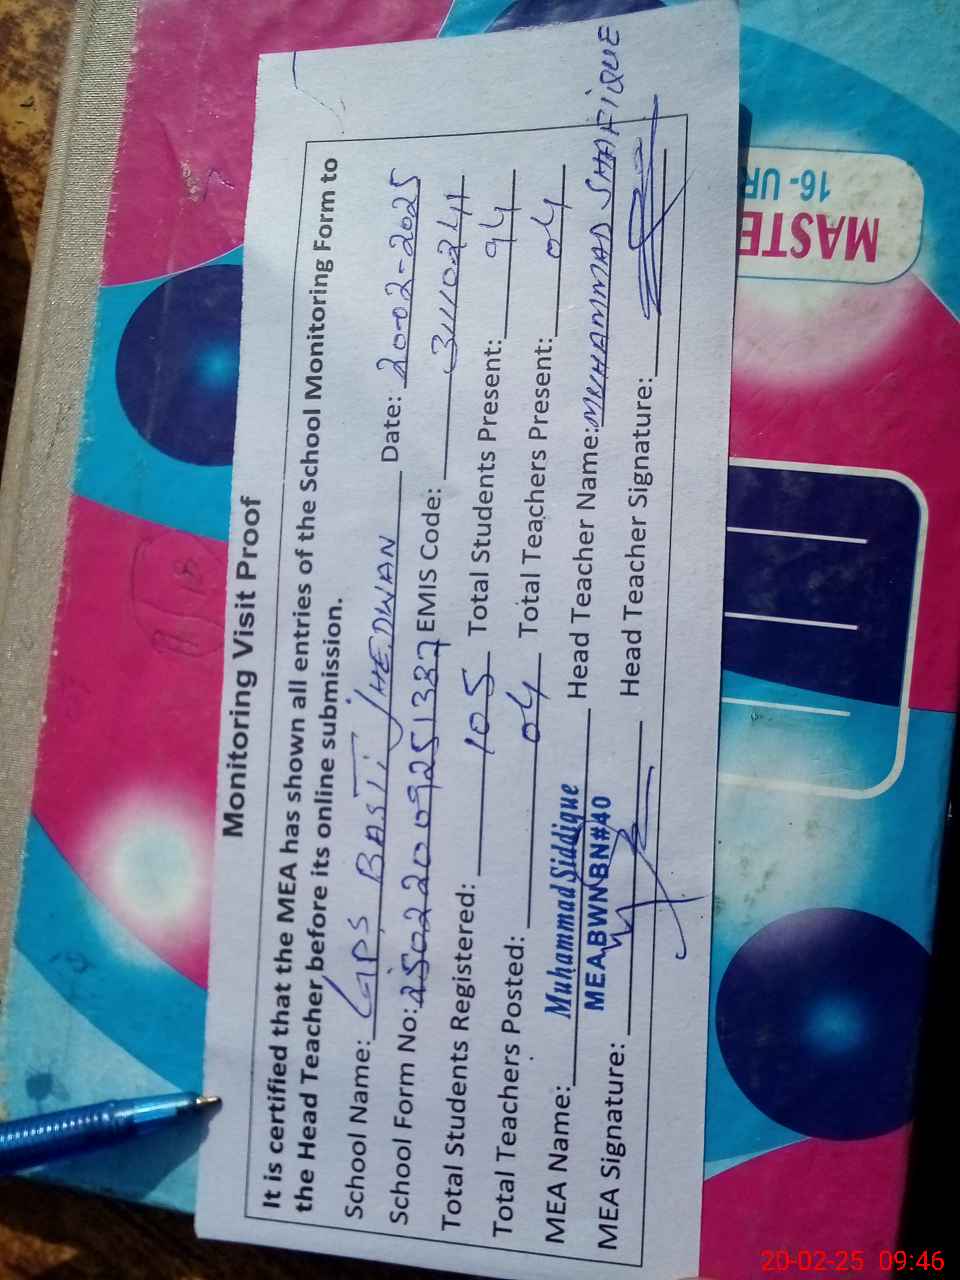 Monitoring Visit Proof
It is certified that the MEA has shown all entries of the School Monitoring Form to
the Head Teacher before its online submission.
School Name: GPS BASTI JHEDWAN Date: 20-02-2025
School Form No: 25022009251387 EMIS Code: 31110241
Total Students Registered: 105 Total Students Present: 94
Total Teachers Posted: 04 Total Teachers Present: 04
MEA Name: Muhammad Siddique Head Teacher Name: MUHAMMAD SHAFIQUE
MEA,BWN BN#40
MEA Signature: Head Teacher Signature:
MASTE
16- UR
20-02-25 09:46